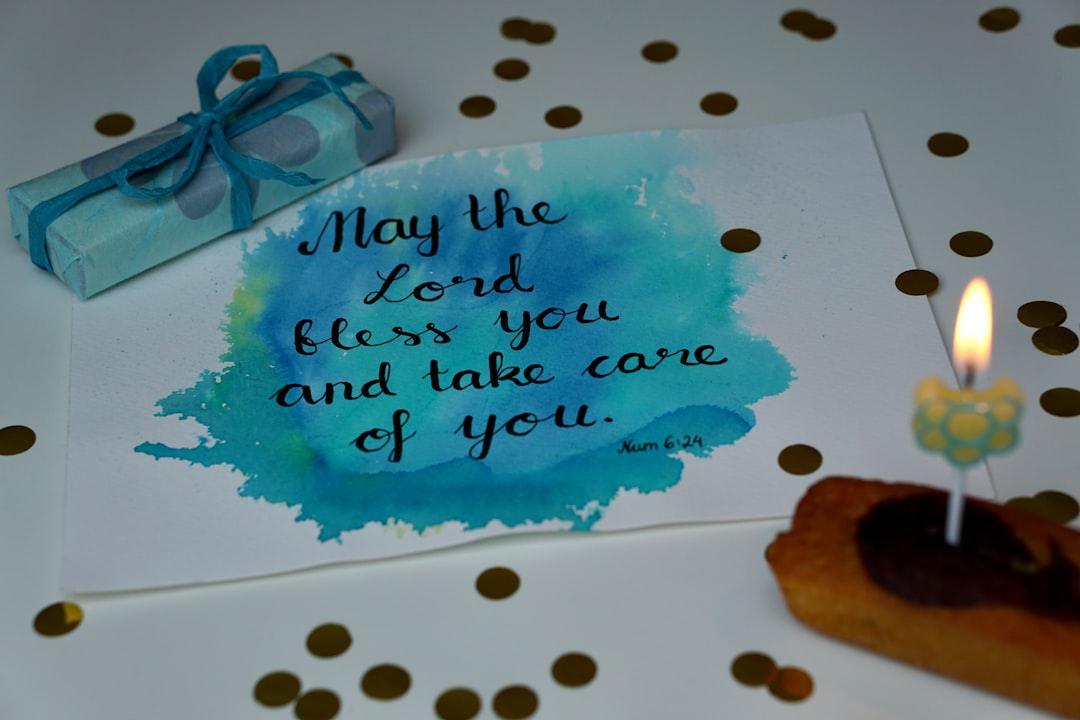 May the
Lord
bless you
and take care
of you.
Num 6:24